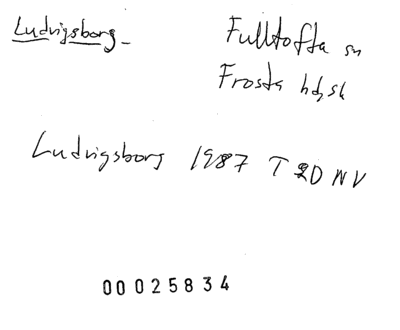 Ludvigsborg
Fulltofta sn
Frosta hd, sk
Ludvigsborg 1987 T 2D NV
00025834